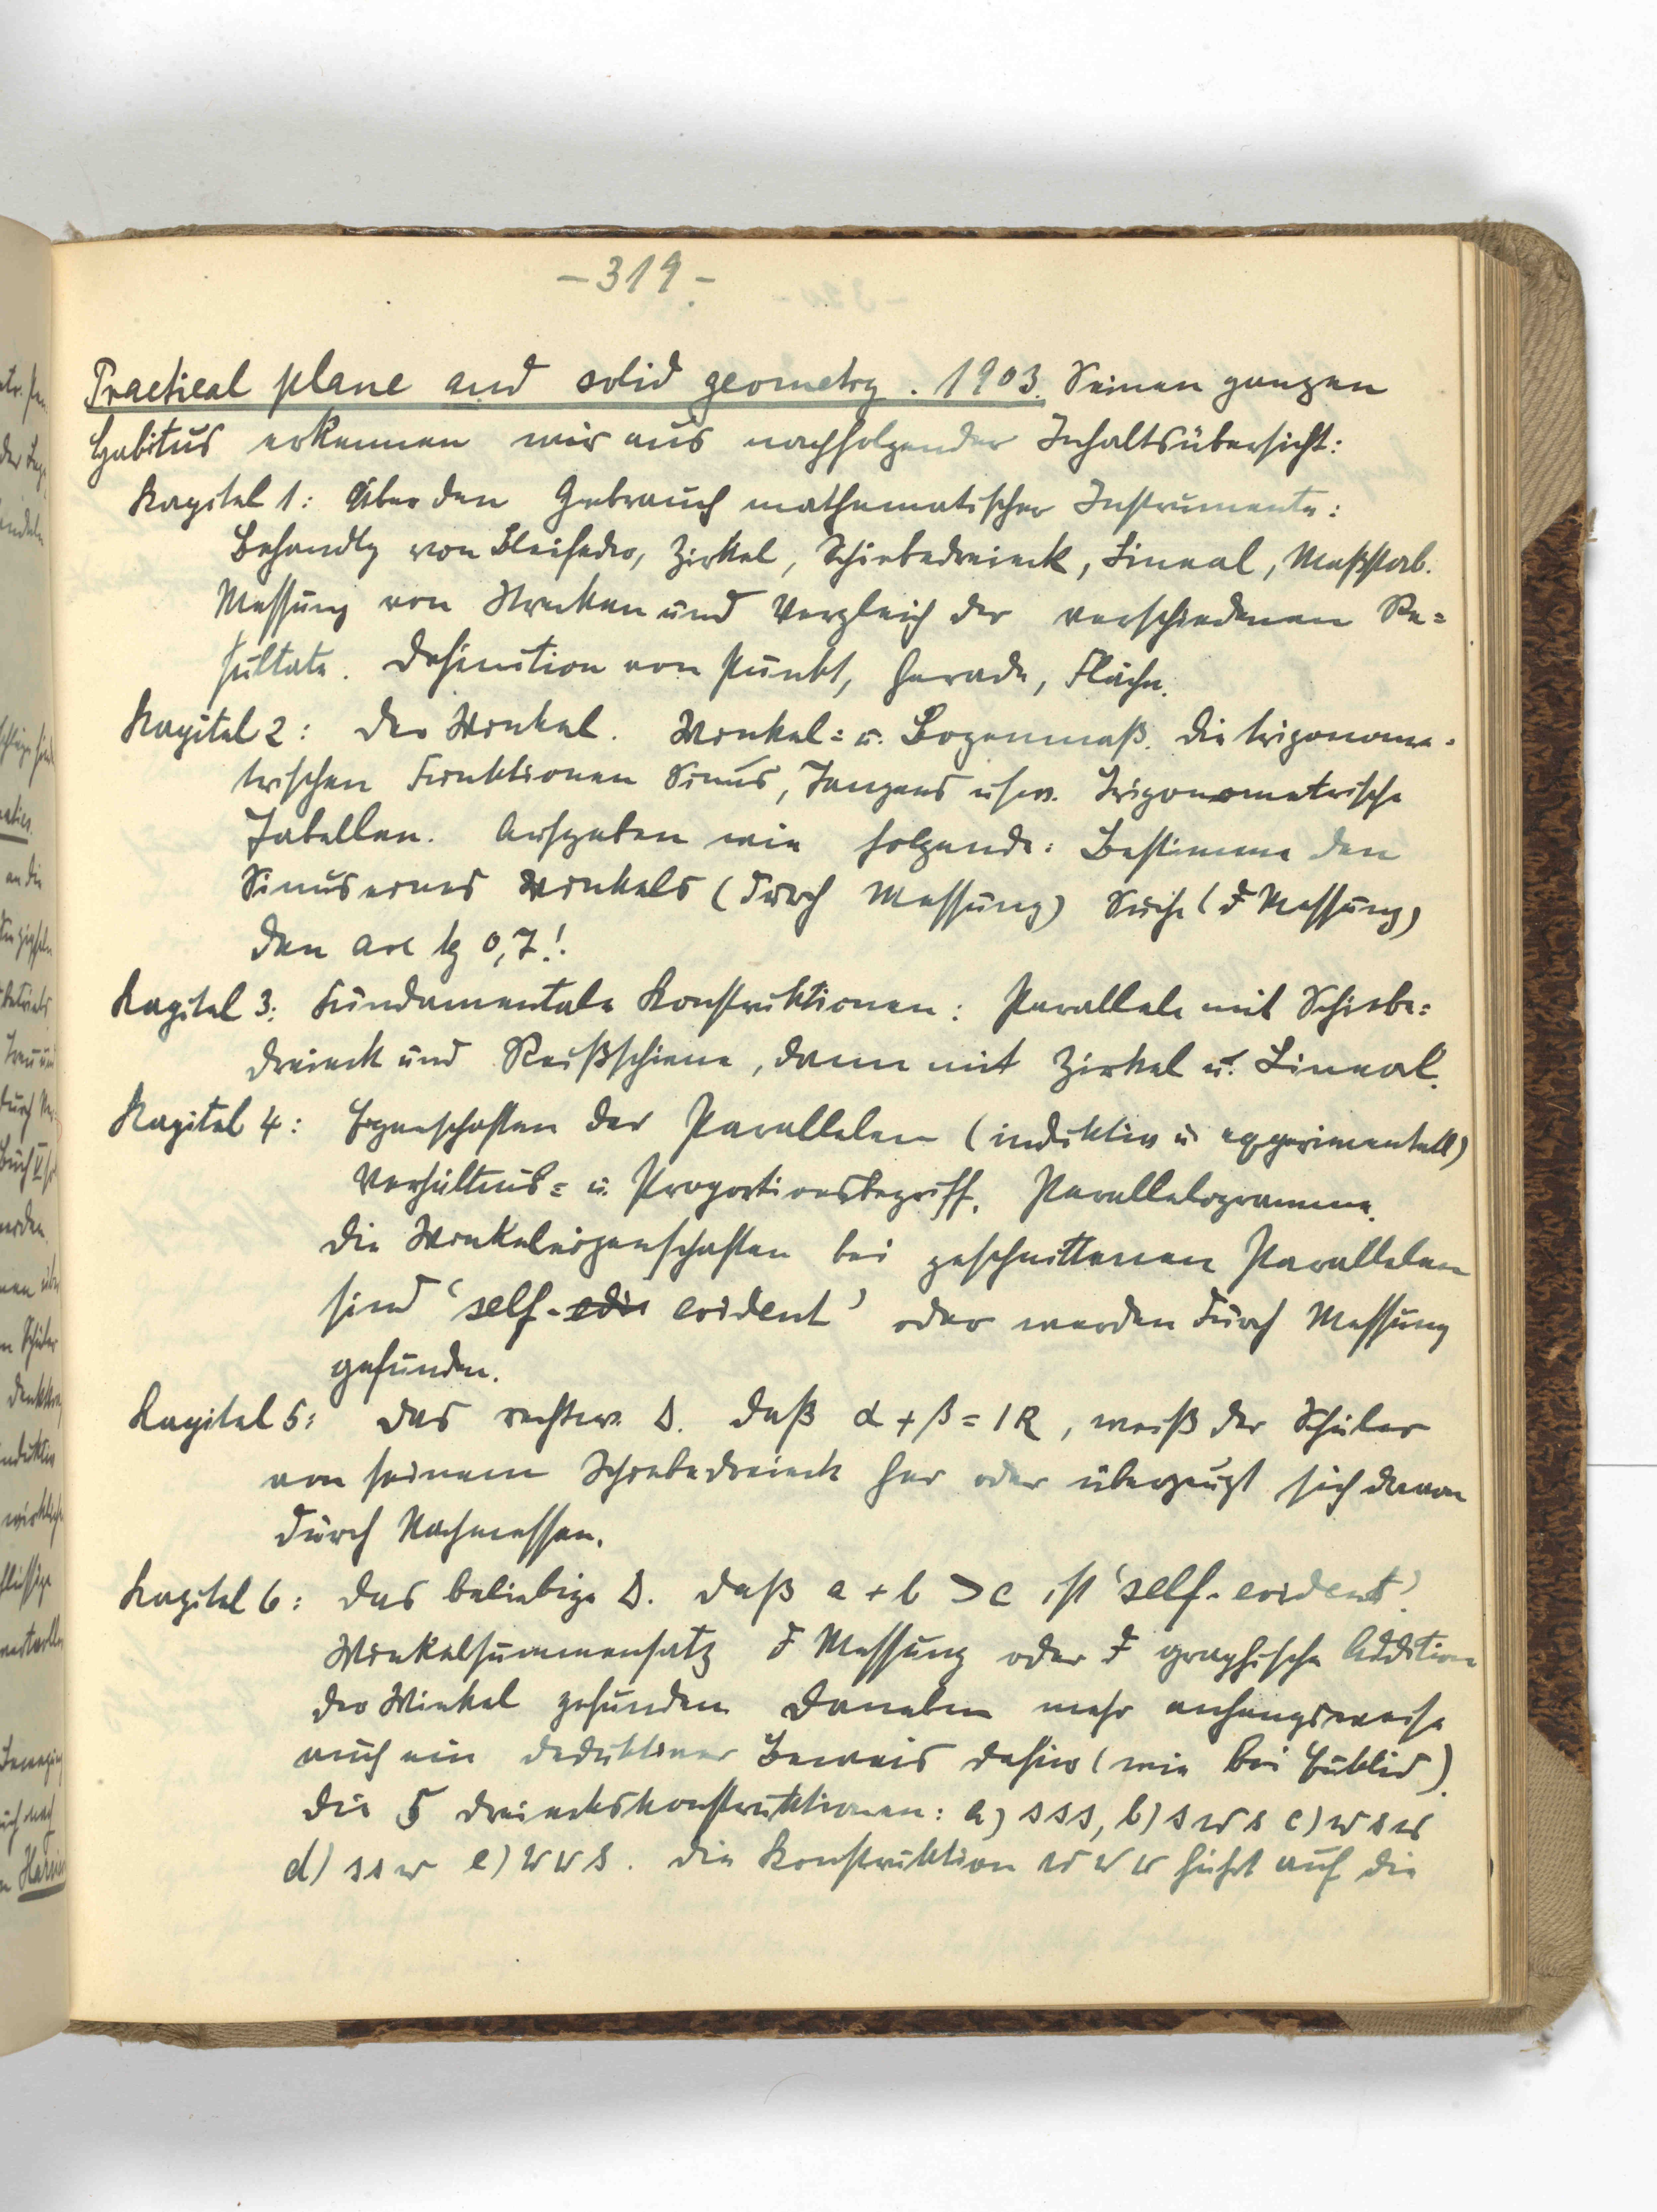 - 319 -
Practical plane and solid geometry. 1903. Seinen ganzen
Habitus erkennen wir aus nachfolgender Inhaltsübersicht:
Kapitel 1: Über den Gebrauch mathematischer Instrumente:
Behandlg von Bleifeder, Zirkel, Schiebedreieck, Lineal, Maßstab.
Messung von Strecken und Vergleich der verschiedenen Re=
sultate. Definition von Punkt, Gerade, Fläche.
Kapitel 2: Der Winkel. Winkel= u. Bogenmaß. Die trigonome=
trischen Funktionen Sinus, Tangens usw. Trigonometrische
Tabellen. Aufgaben wie folgende: Bestimme den
Sinus eines Winkels (durch Messung) Suche (d Messung)
den arc tg 0,7!
Kapitel 3: Fundamentale Konstruktionen: Parallele mit Schiebe=
dreieck und Reißschiene, dann mit Zirkel u. Lineal.
Kapitel 4: Eigenschaften der Parallelen (induktiv u. experimentell)
Verhältnis= u. Proportionsbegriff. Parallelogramme.
Die Winkeleigenschaften bei geschnittenen Parallelen
sind 'self-evident' oder werden durch Messung
gefunden.
Kapitel 5: Das rechtw. Δ. Daß α + β = 1R, weiß der Schüler
von seinem Schiebedreieck her oder überzeugt sich davon
durch Nachmessen.
Kapitel 6: Das beliebige Δ. Daß a + b > c ist 'self-evident'.
Winkelsummensatz d Messung oder d graphische Addition
der Winkel gefunden. Daneben mehr anhangsweise
auch ein deduktiver Beweis dafür (wie bei Euklid).
Die 5 Dreieckskonstruktionen: a) sss, b) sws c) wsw
d) ssw e) wws. Die Konstruktion www führt auf die